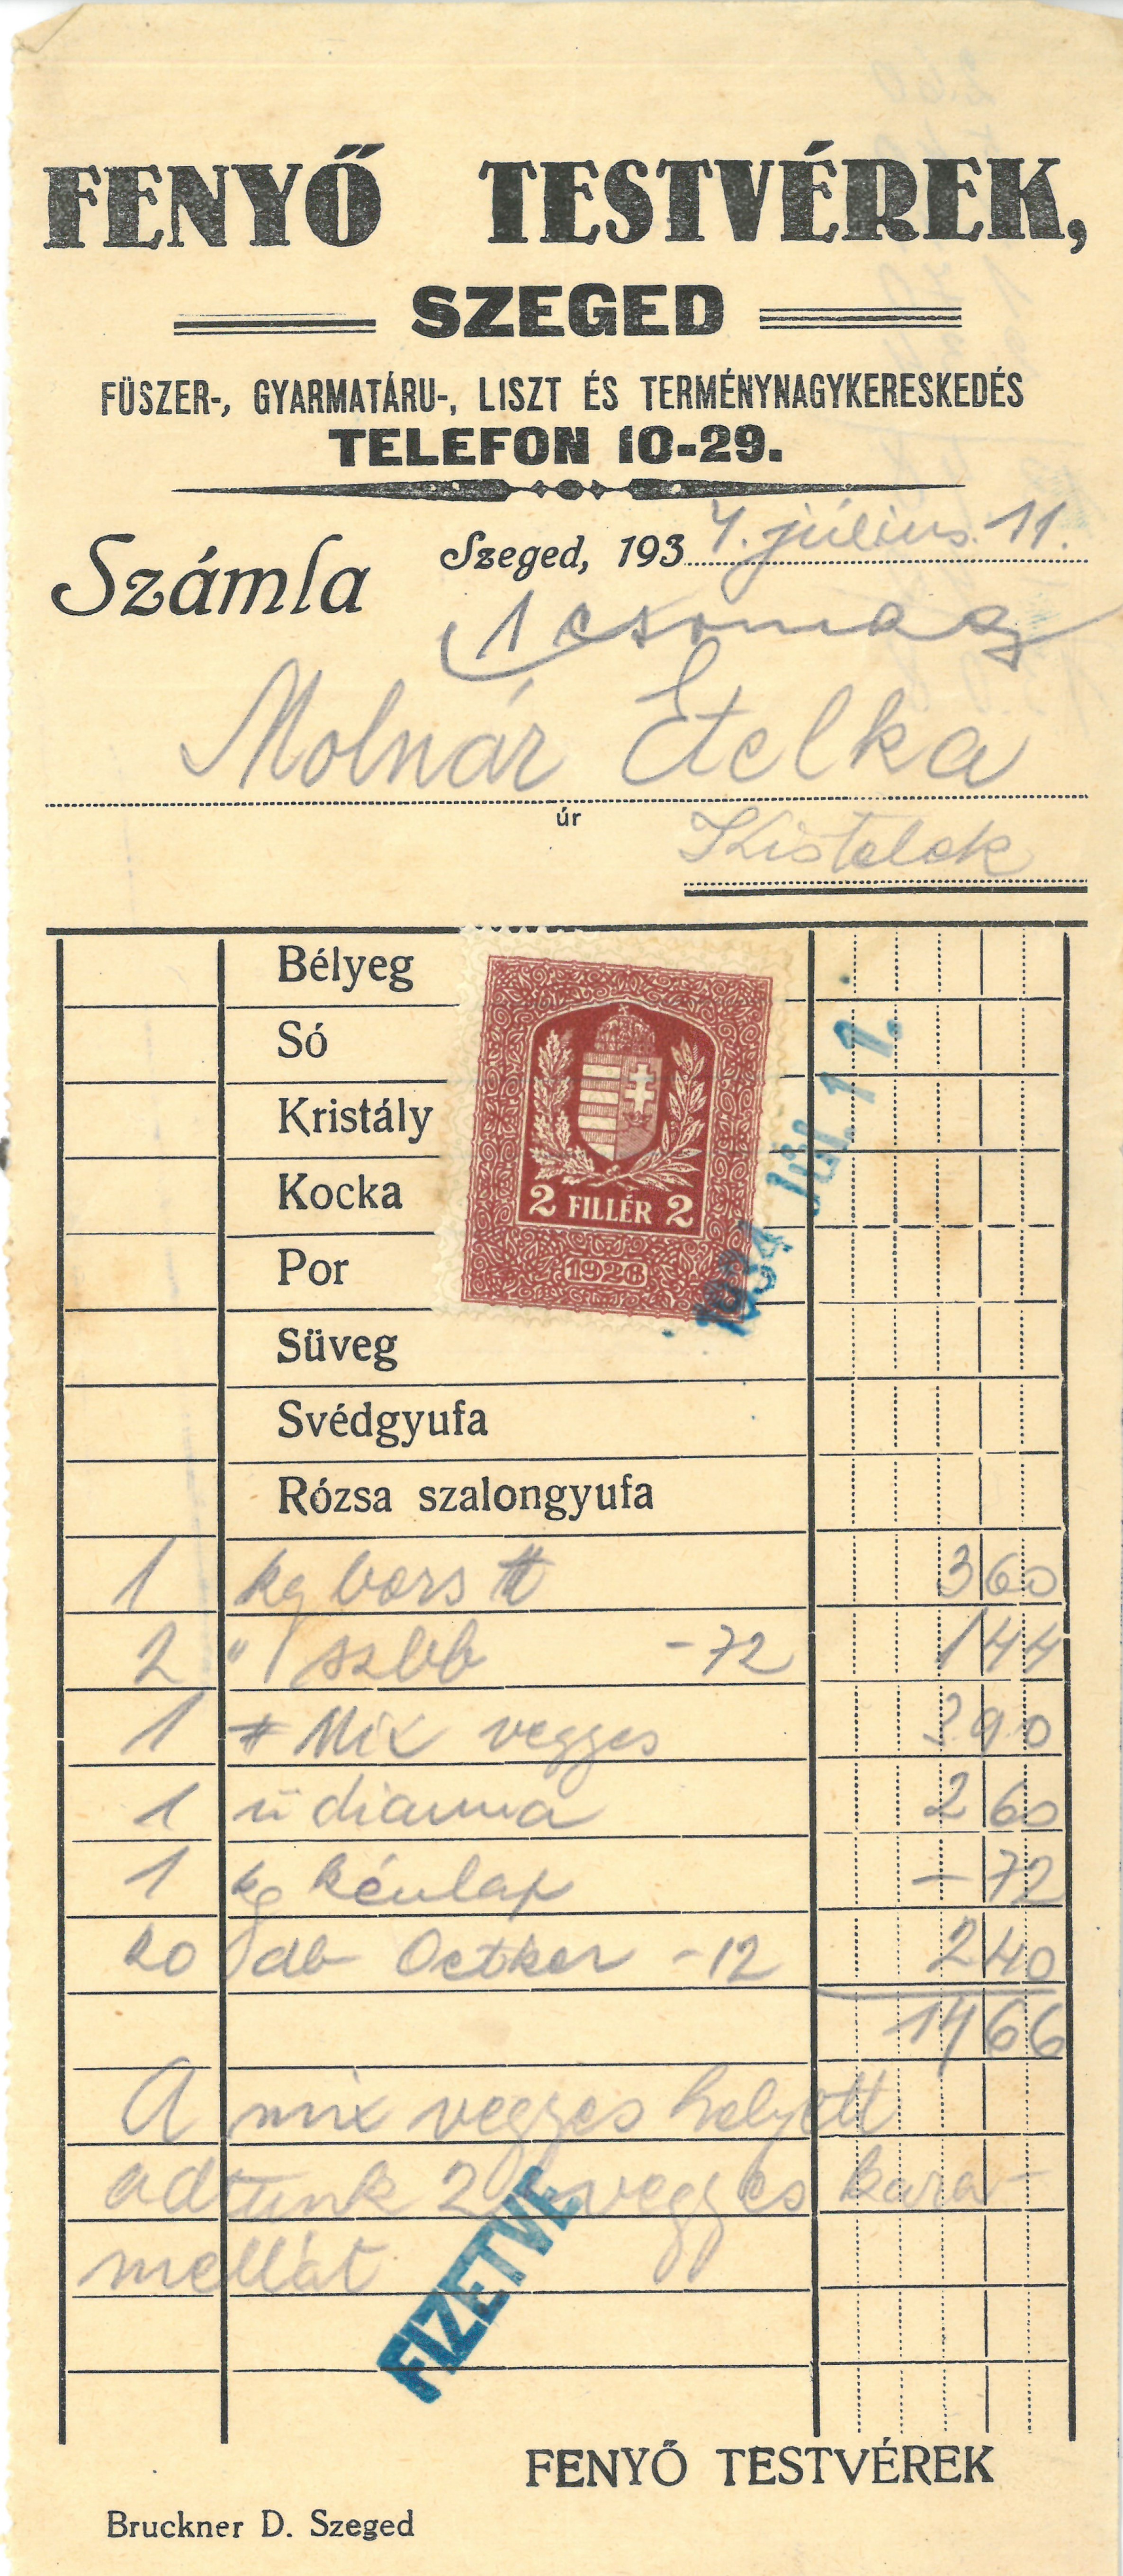 FENYŐ TESTVÉREK,
SZEGED
FÜSZER-, GYARMATÁRU-, LISZT ÉS TERMÉNYNAGYKERESKEDÉS
TELEFON 10-29.
Számla
Szeged, 1934. július. 11.
1 csomag
Molnár Etelka
úr
Kistelek
Bélyeg
Só
Kristály
Kocka
Por
Süveg
Svédgyufa
Rózsa szalongyufa
2 FILLÉR 2
1926
1934 JÚL 11.
1 kg bors 3 60
2 " szbb -72 1 44
1 Mix vegyes 3 90
1 ü dianna 2 60
1 kg kénlap -72
20 db Oetker -12 2 40
14 66
A mix vegyes helyett
adtunk 2 vegyes kara-
mellát
FIZETVE
FENYŐ TESTVÉREK
Bruckner D. Szeged